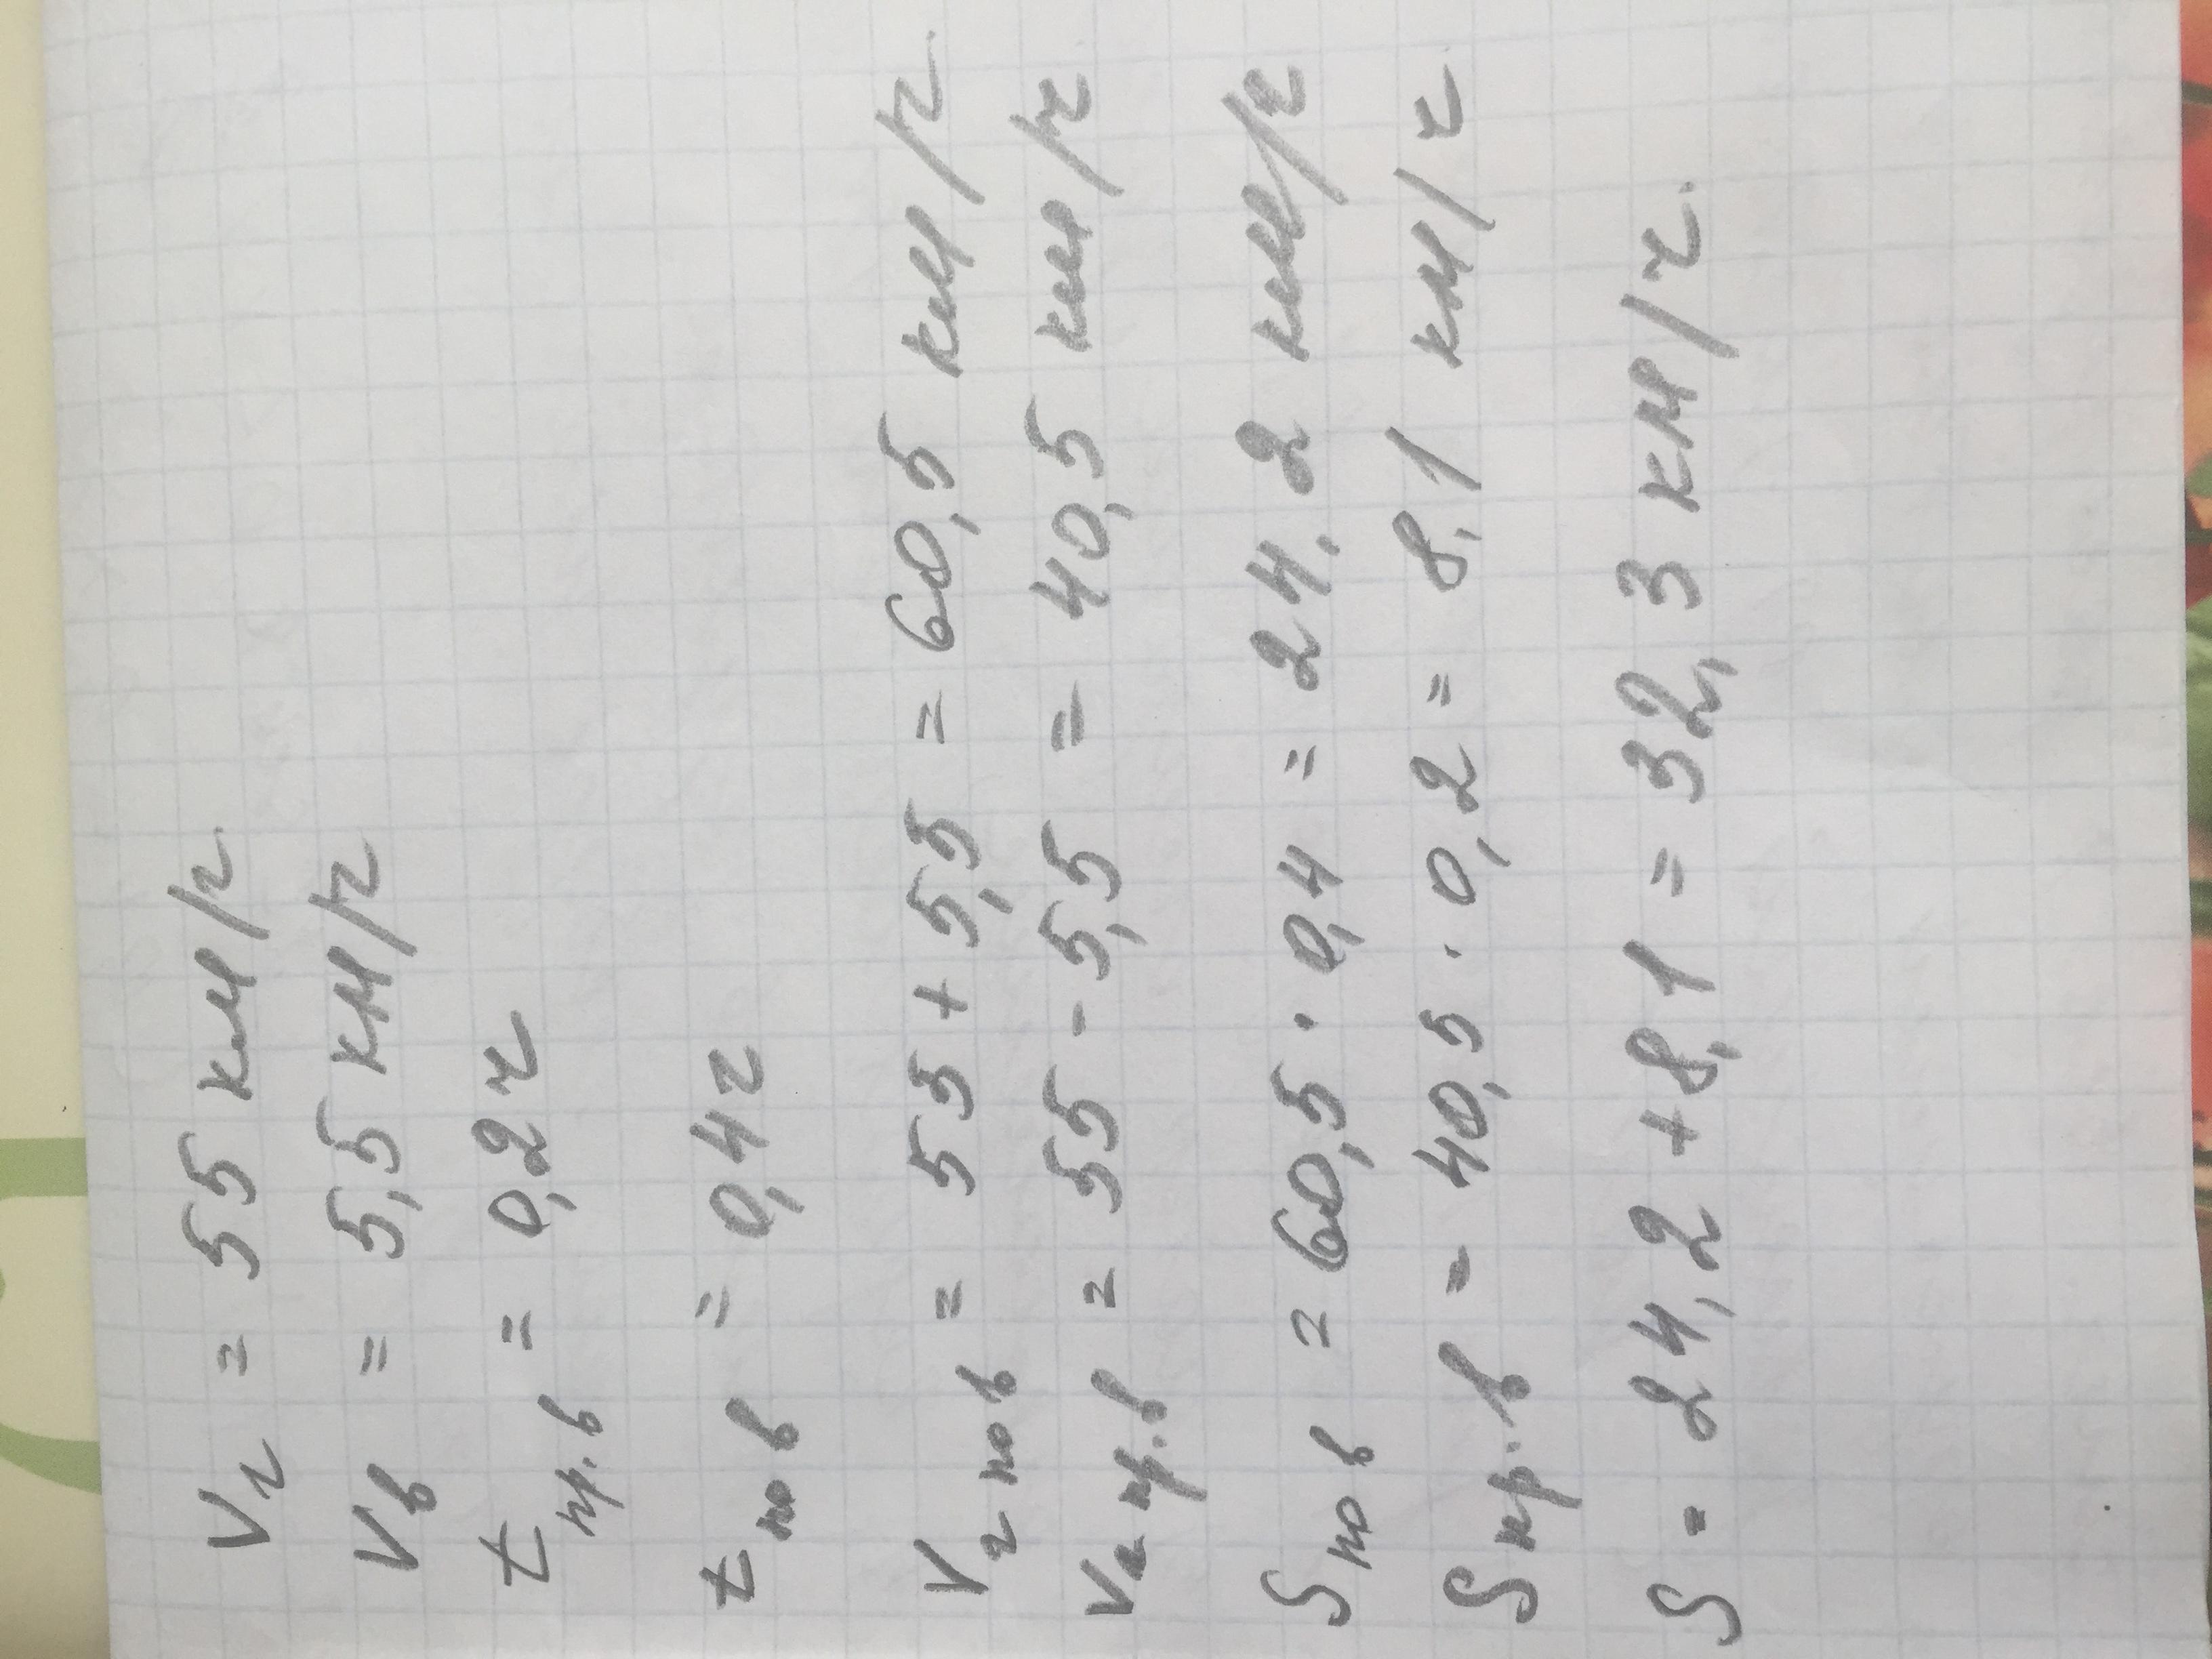 Vг = 55 км/ч
Vв = 5,5 км/ч
tпр.в = 0,2ч
tпо в = 0,4ч
Vг по в = 55 + 5,5 = 60,5 км/ч.
Vг пр.в = 55 - 5,5 = 40,5 км/ч.
Sпо в = 60,5 · 0,4 = 24,2 км/ч
Sпр.в = 40,5 · 0,2 = 8,1 км/ч
S = 24,2 + 8,1 = 32,3 км/ч.